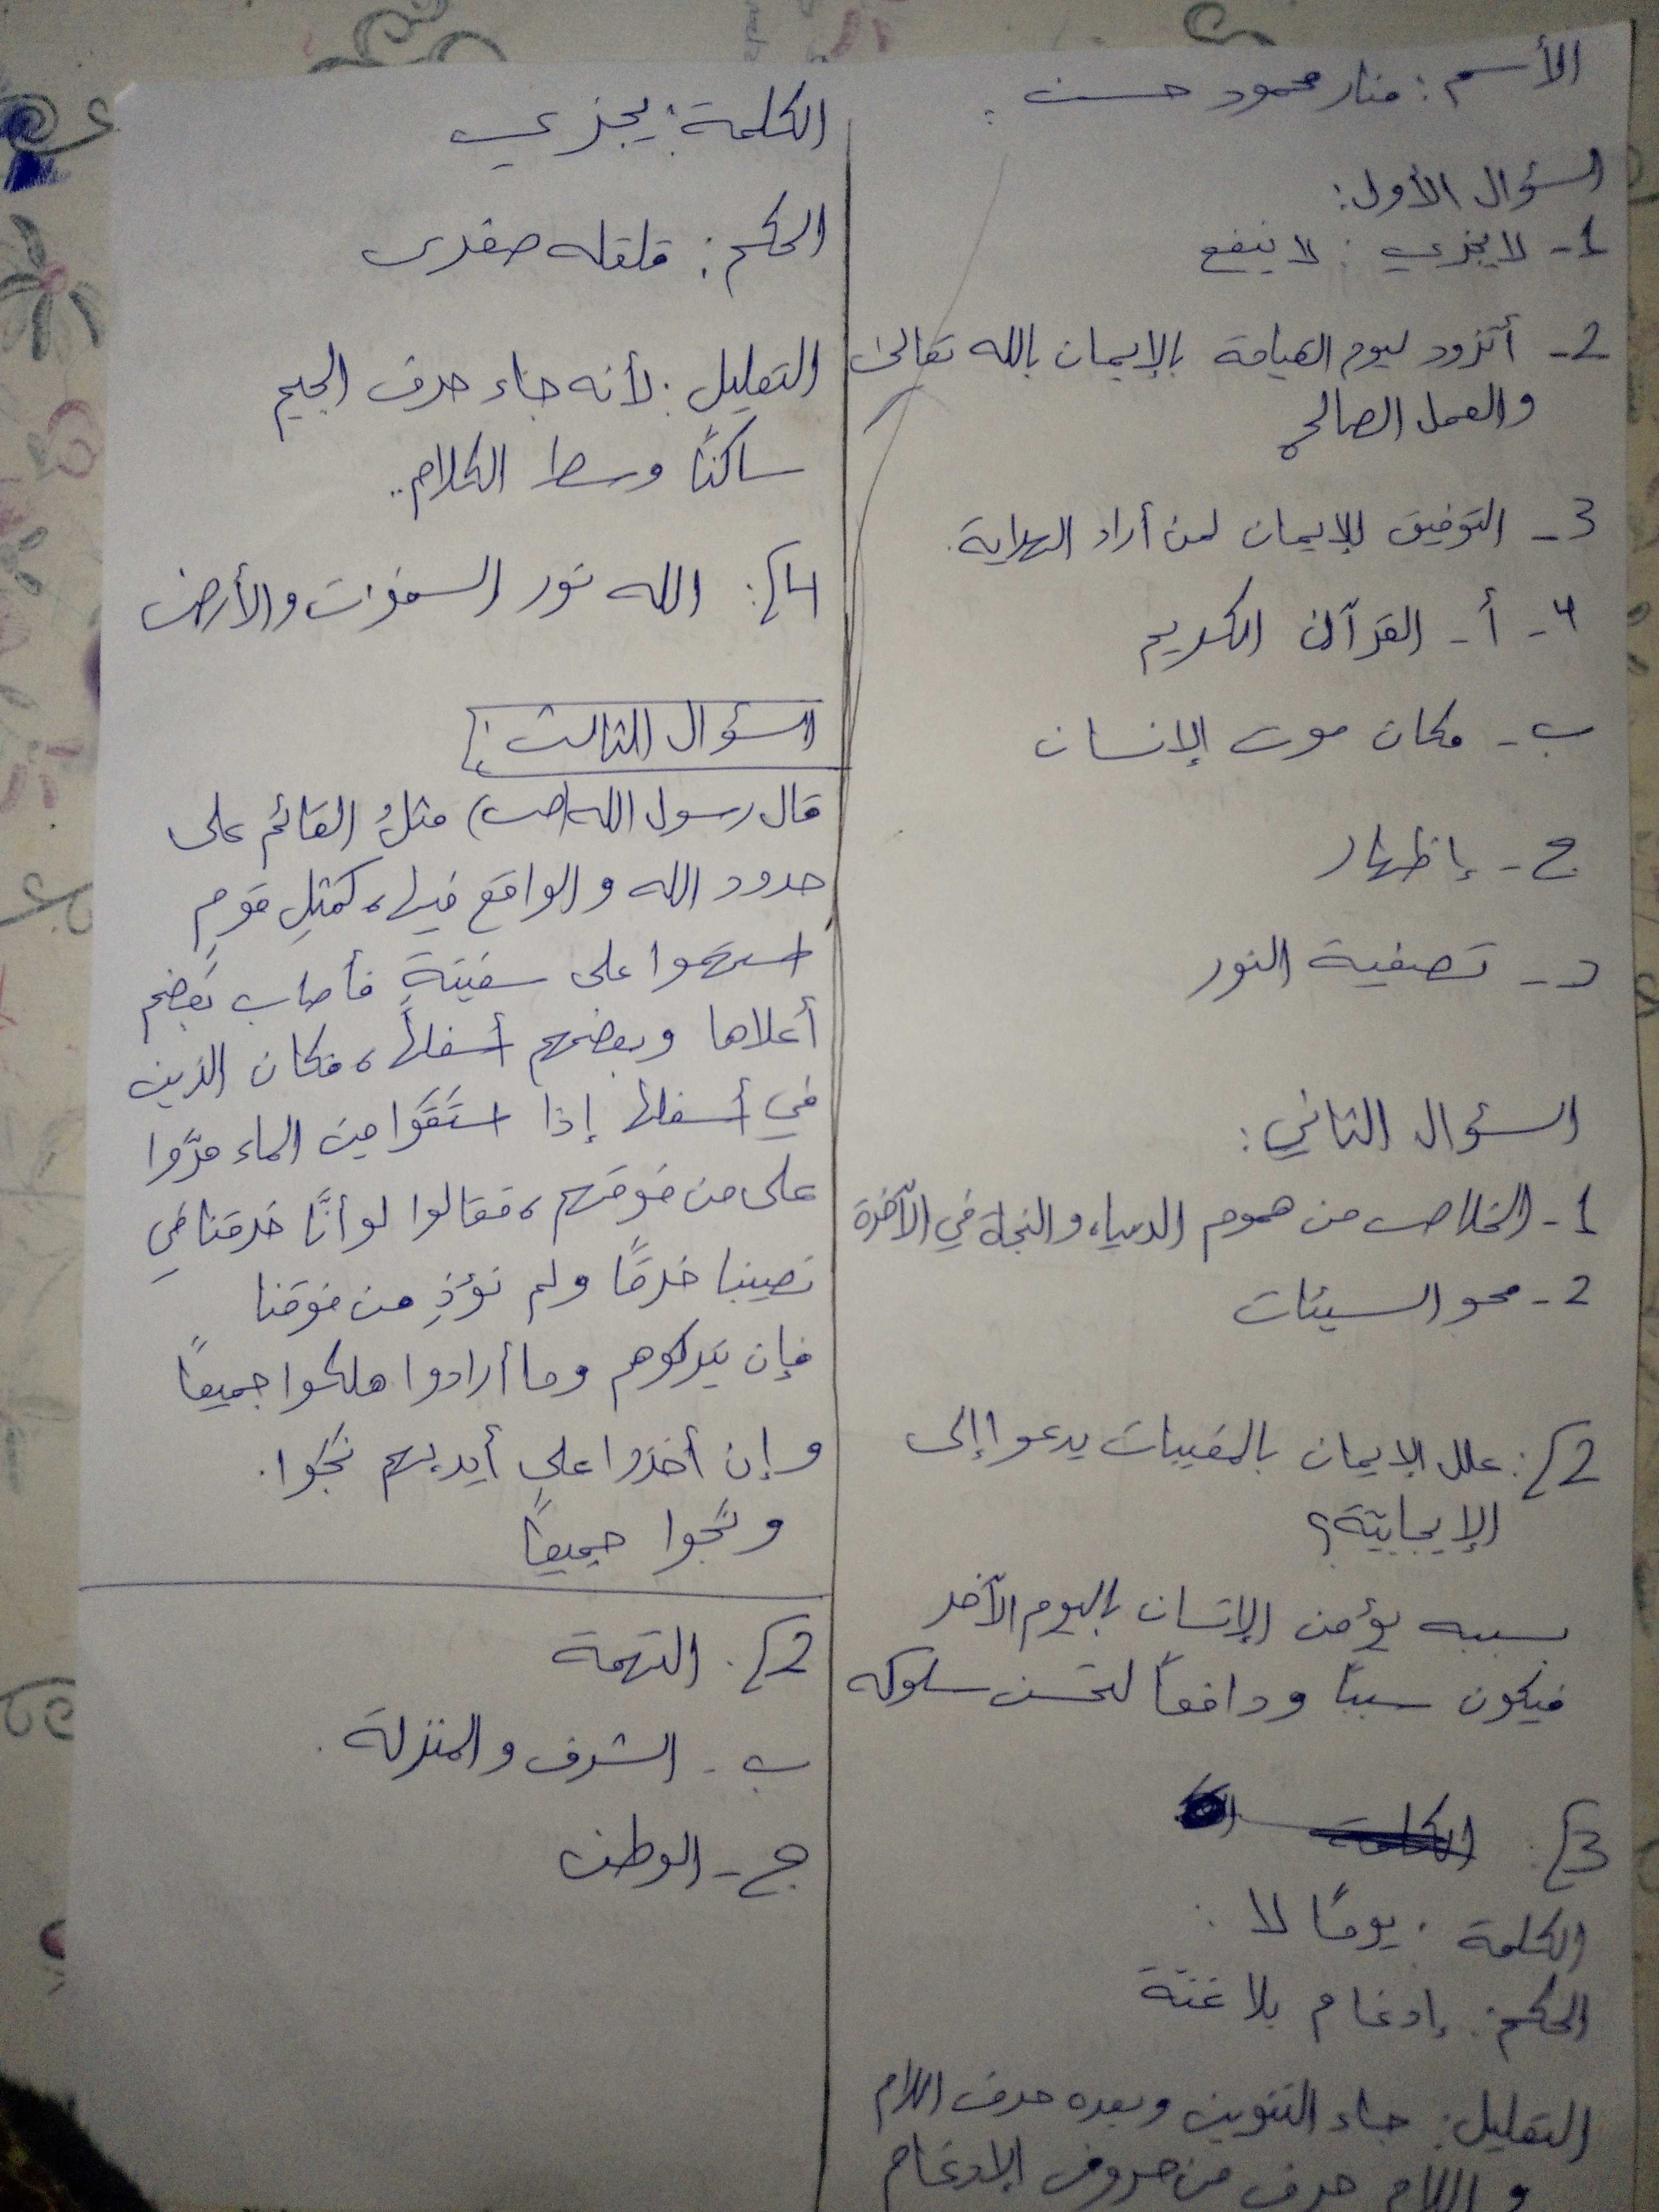 الأسم : منار محمود حسن :
السؤال الأول:
1- لا يجزي : لا ينفع
2- أتزود ليوم القيامة بالإيمان بالله تعالى
والعمل الصالح
3- التوفيق للإيمان لمن أراد الهداية.
4- أ- القرآن الكريم
ب- مكان موت الإنسان
ج- إظهار
د- تصفية النور
السؤال الثاني:
1- الخلاص من هموم الدنيا، والنجاة في الآخرة
2- محو السيئات
2/: علل الإيمان بالمغيبات يدعوا إلى
الإيجابية؟
بسببه يؤمن الإنسان باليوم الآخر
فيكون سبباً ودافعاً لتحسن سلوكه
3/: الكلمة
الكلمة : يومًا لا :
الحكم: إدغام بلا غنة
التعليل: جاء التنوين وبعده حرف اللام
و اللام حرف من حروف الإدغام
الكلمة: يجزي
الحكم: قلقله صغرى
التعليل: لأنه جاء حرف الجيم
ساكنًا وسط الكلام..
4/: الله نور السموات والأرض
السؤال الثالث:
قال رسول الله (ص) مثلُ القائم على
حدود الله والواقع فيها، كمثلِ قومٍ
استهموا على سفينةٍ فأصاب بَعضهم
أعلاها وبعضهم أسفلَها، فكان الذين
في أسفلها إذا استَقَوا مِن الماء مرَّوا
على من فوقهم، فقالوا لو أنَّا خرقنا في
نصيبنا خرقًا ولم نؤذِ من فوقنا
فإن يَتركوهم وما أرادوا هلكوا جميعًا
وإن أخذوا على أيديهم نَجَوا.
ونَجوا جميعًا
2/. التهمة
ب- الشرف والمنزلة.
ج- الوطن